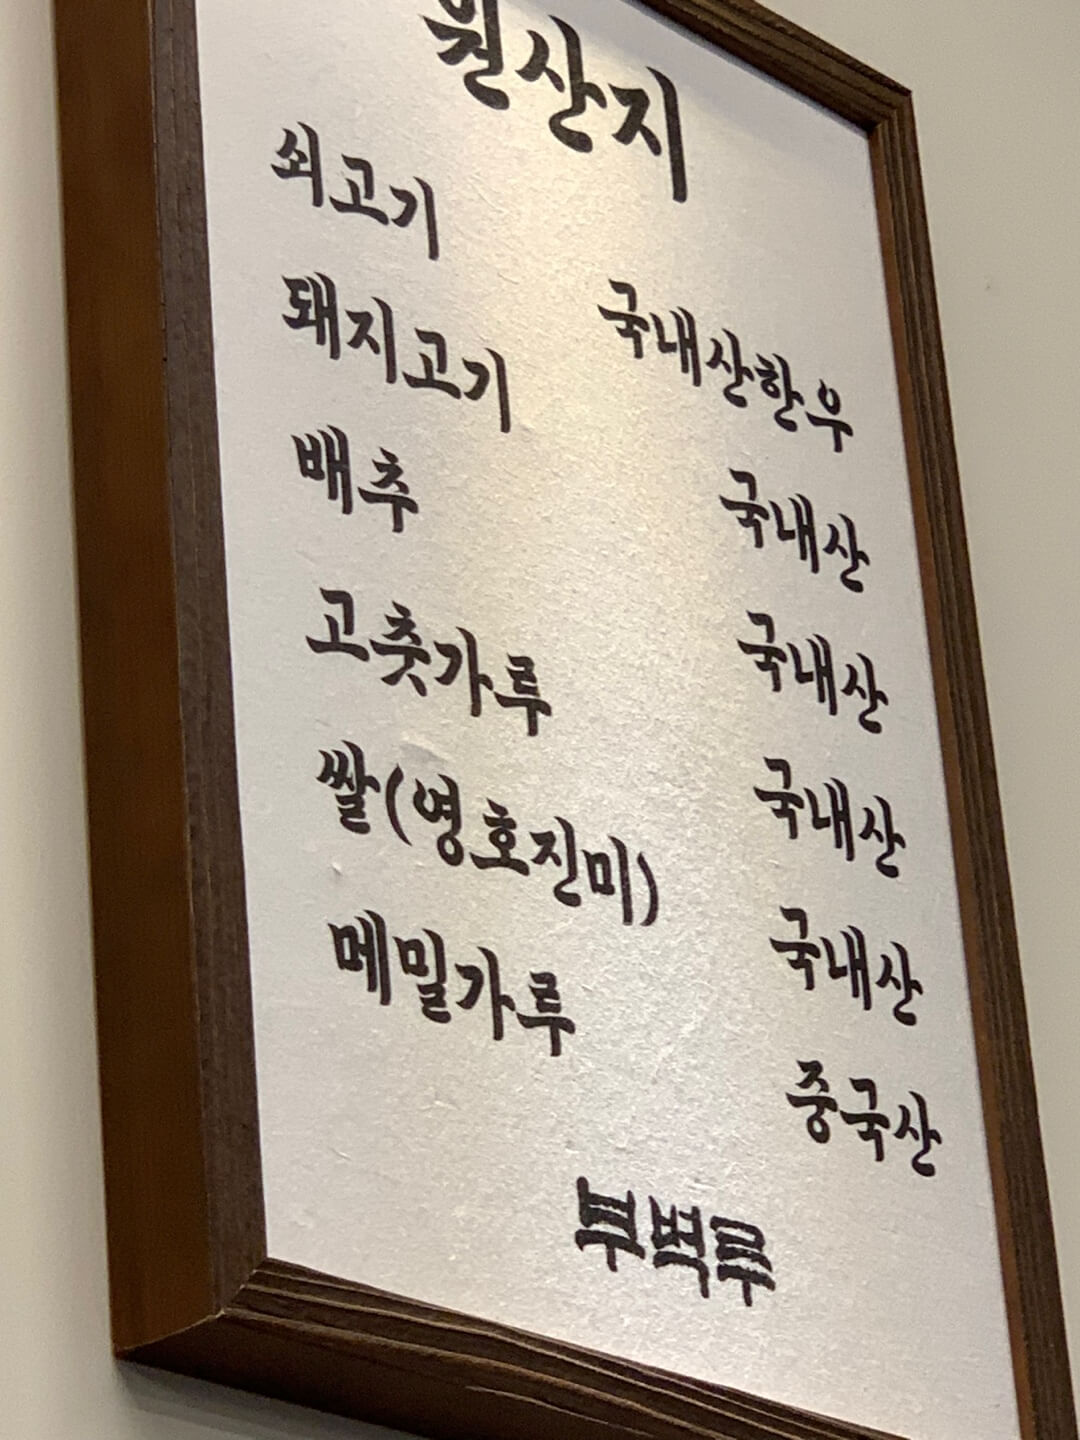 원산지
쇠고기 국내산한우
돼지고기 국내산
배추 국내산
고춧가루 국내산
쌀(영호진미) 국내산
메밀가루 중국산